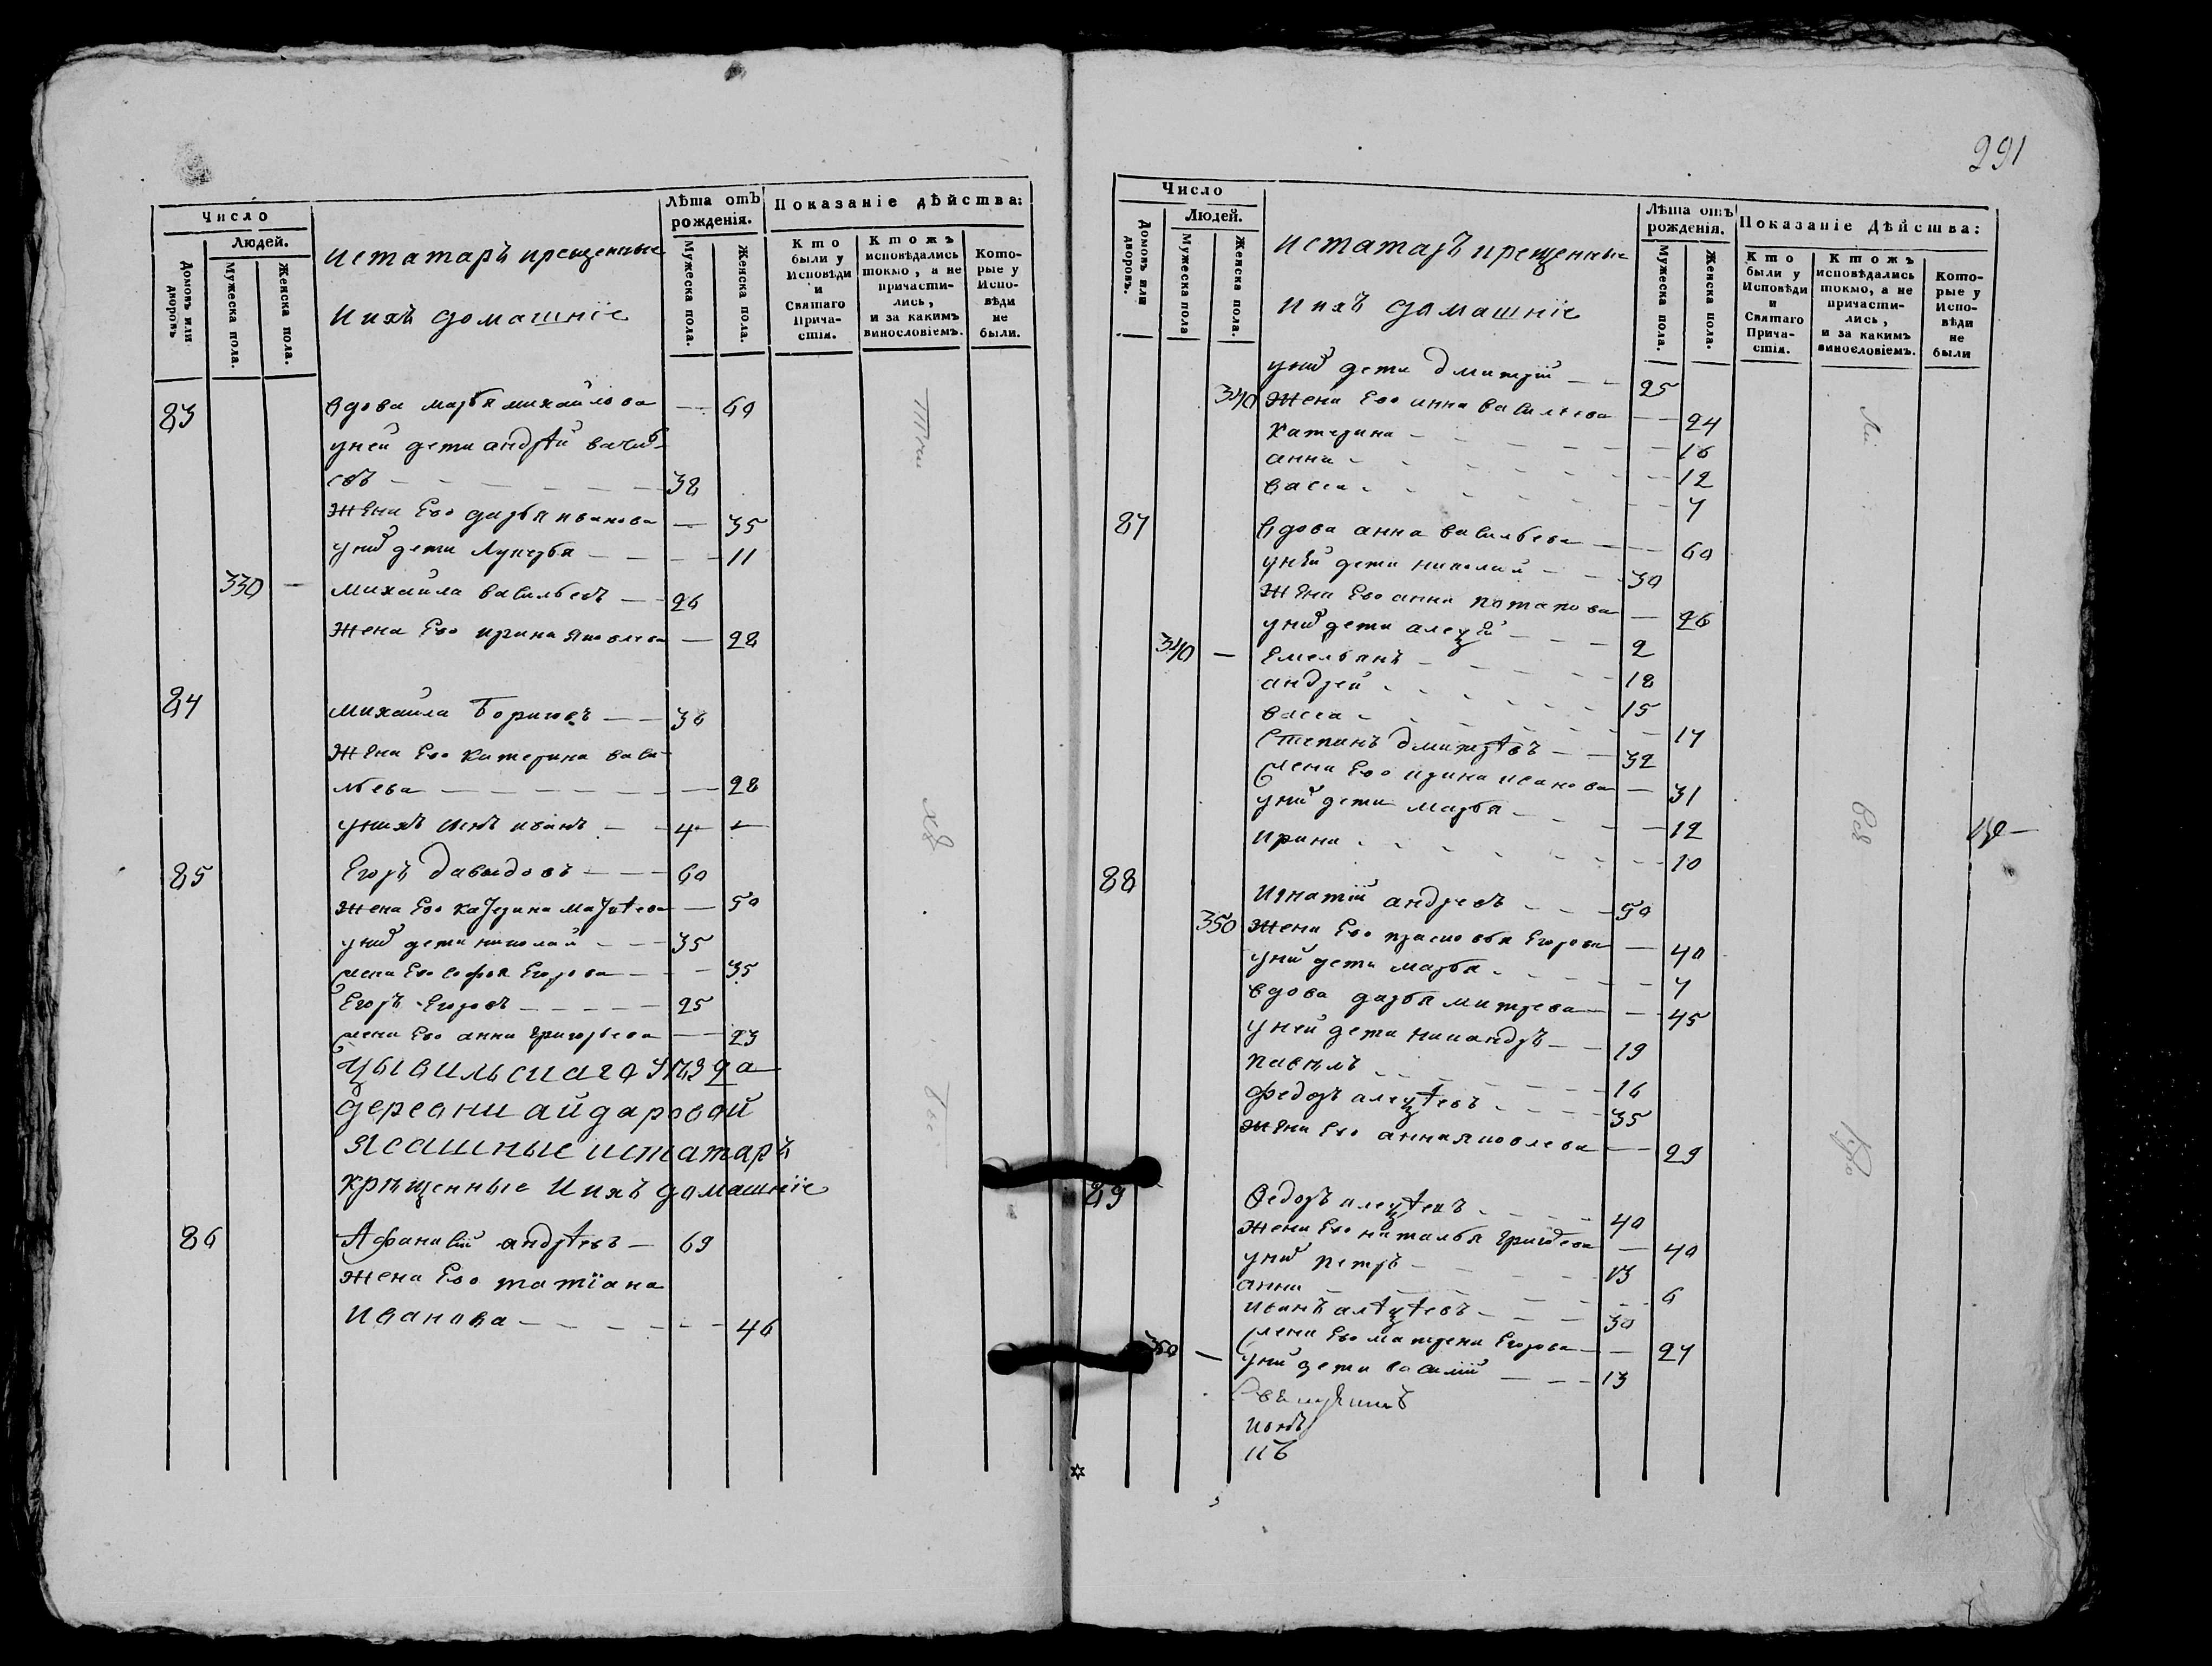 Число
Людей.
Домовъ или дворовъ
Мужеска пола.
Женска пола.
истатаръ крещенные
и ихъ домашніе
Лѣта отъ рожденія.
Мужеска пола.
Женска пола.
Показаніе дѣйства:
Кто были у Исповѣди и Святаго Прича-стія.
Ктожъ исповѣдались токмо, а не причасти-лись, и за какимъ винословіемъ.
Кото-рые у Испо-вѣди не были.
83 вдова марья михайлова — 60
уней дети андрѣй василь-
евъ — 38
жена Ево дарья иванова — 35
уних дети Лукерья — 11
330 — михайла васильевъ — 26
жена Ево ирина яковлева — 28
84 михайла Борисовъ — 30
жена Ево катерина васи-
льева — 28
унихъ сынъ иванъ — 4 —
85 Егоръ давыдовъ — 60
жена Ево катерина матвѣева — 50
уних дети николай — 35
жена Ево софья Егорова — 35
Егоръ Егоровъ — 25
жена Ево анна григорьева — 23
цывильскаго уѣзда
деревни айдаровой
ясашные истатаръ
крѣщенные и ихъ домашніе
86 Афанасій андрѣевъ — 69
жена Ево татіана
Иванова — 46
291
Число
Людей.
Домовъ или дворовъ.
Мужеска пола
Женска пола.
истатаръ крещенные
и ихъ домашніе
Лѣта отъ рожденія.
Мужеска пола.
Женска пола.
Показаніе Дѣйства:
Кто были у Исповѣди и Святаго Прича-стія.
Ктожъ исповѣдались токмо, а не причасти-лись, и за какимъ винословіемъ.
Кото-рые у Испо-вѣди не были
уних дети дмитрій — 25
340 жена Ево анна васильева — 24
катерина — 16
анна — 12
васса — 7
87 вдова анна васильева — 60
уней дети николай — 30
жена Ево анна потапова — 26
уних дети алеѯей — 2
340 — Емельянъ — 18
андрей — 15
васса — 17
Степанъ дмитрѣвъ — 32
жена Ево ирина иванова — 31
уних дети марья — 12
ирина — 10
88 Игнатій андревъ — 50
350 жена Ево прасковья Егорова — 40
уних дети марья — 7
вдова дарья митрева — 45
уней дети никандръ — 19
павелъ — 16
федоръ алеѯѣевъ — 35
жена Ево анна яковлева — 29
89 Федоръ алеѯѣевъ — 40
жена Ево наталья — 40
уних петръ — 13
анна — 6
иванъ алѣѯѣевъ — 30
жена Ево матрена Егорова — 27
360 — уних дети василій — 13